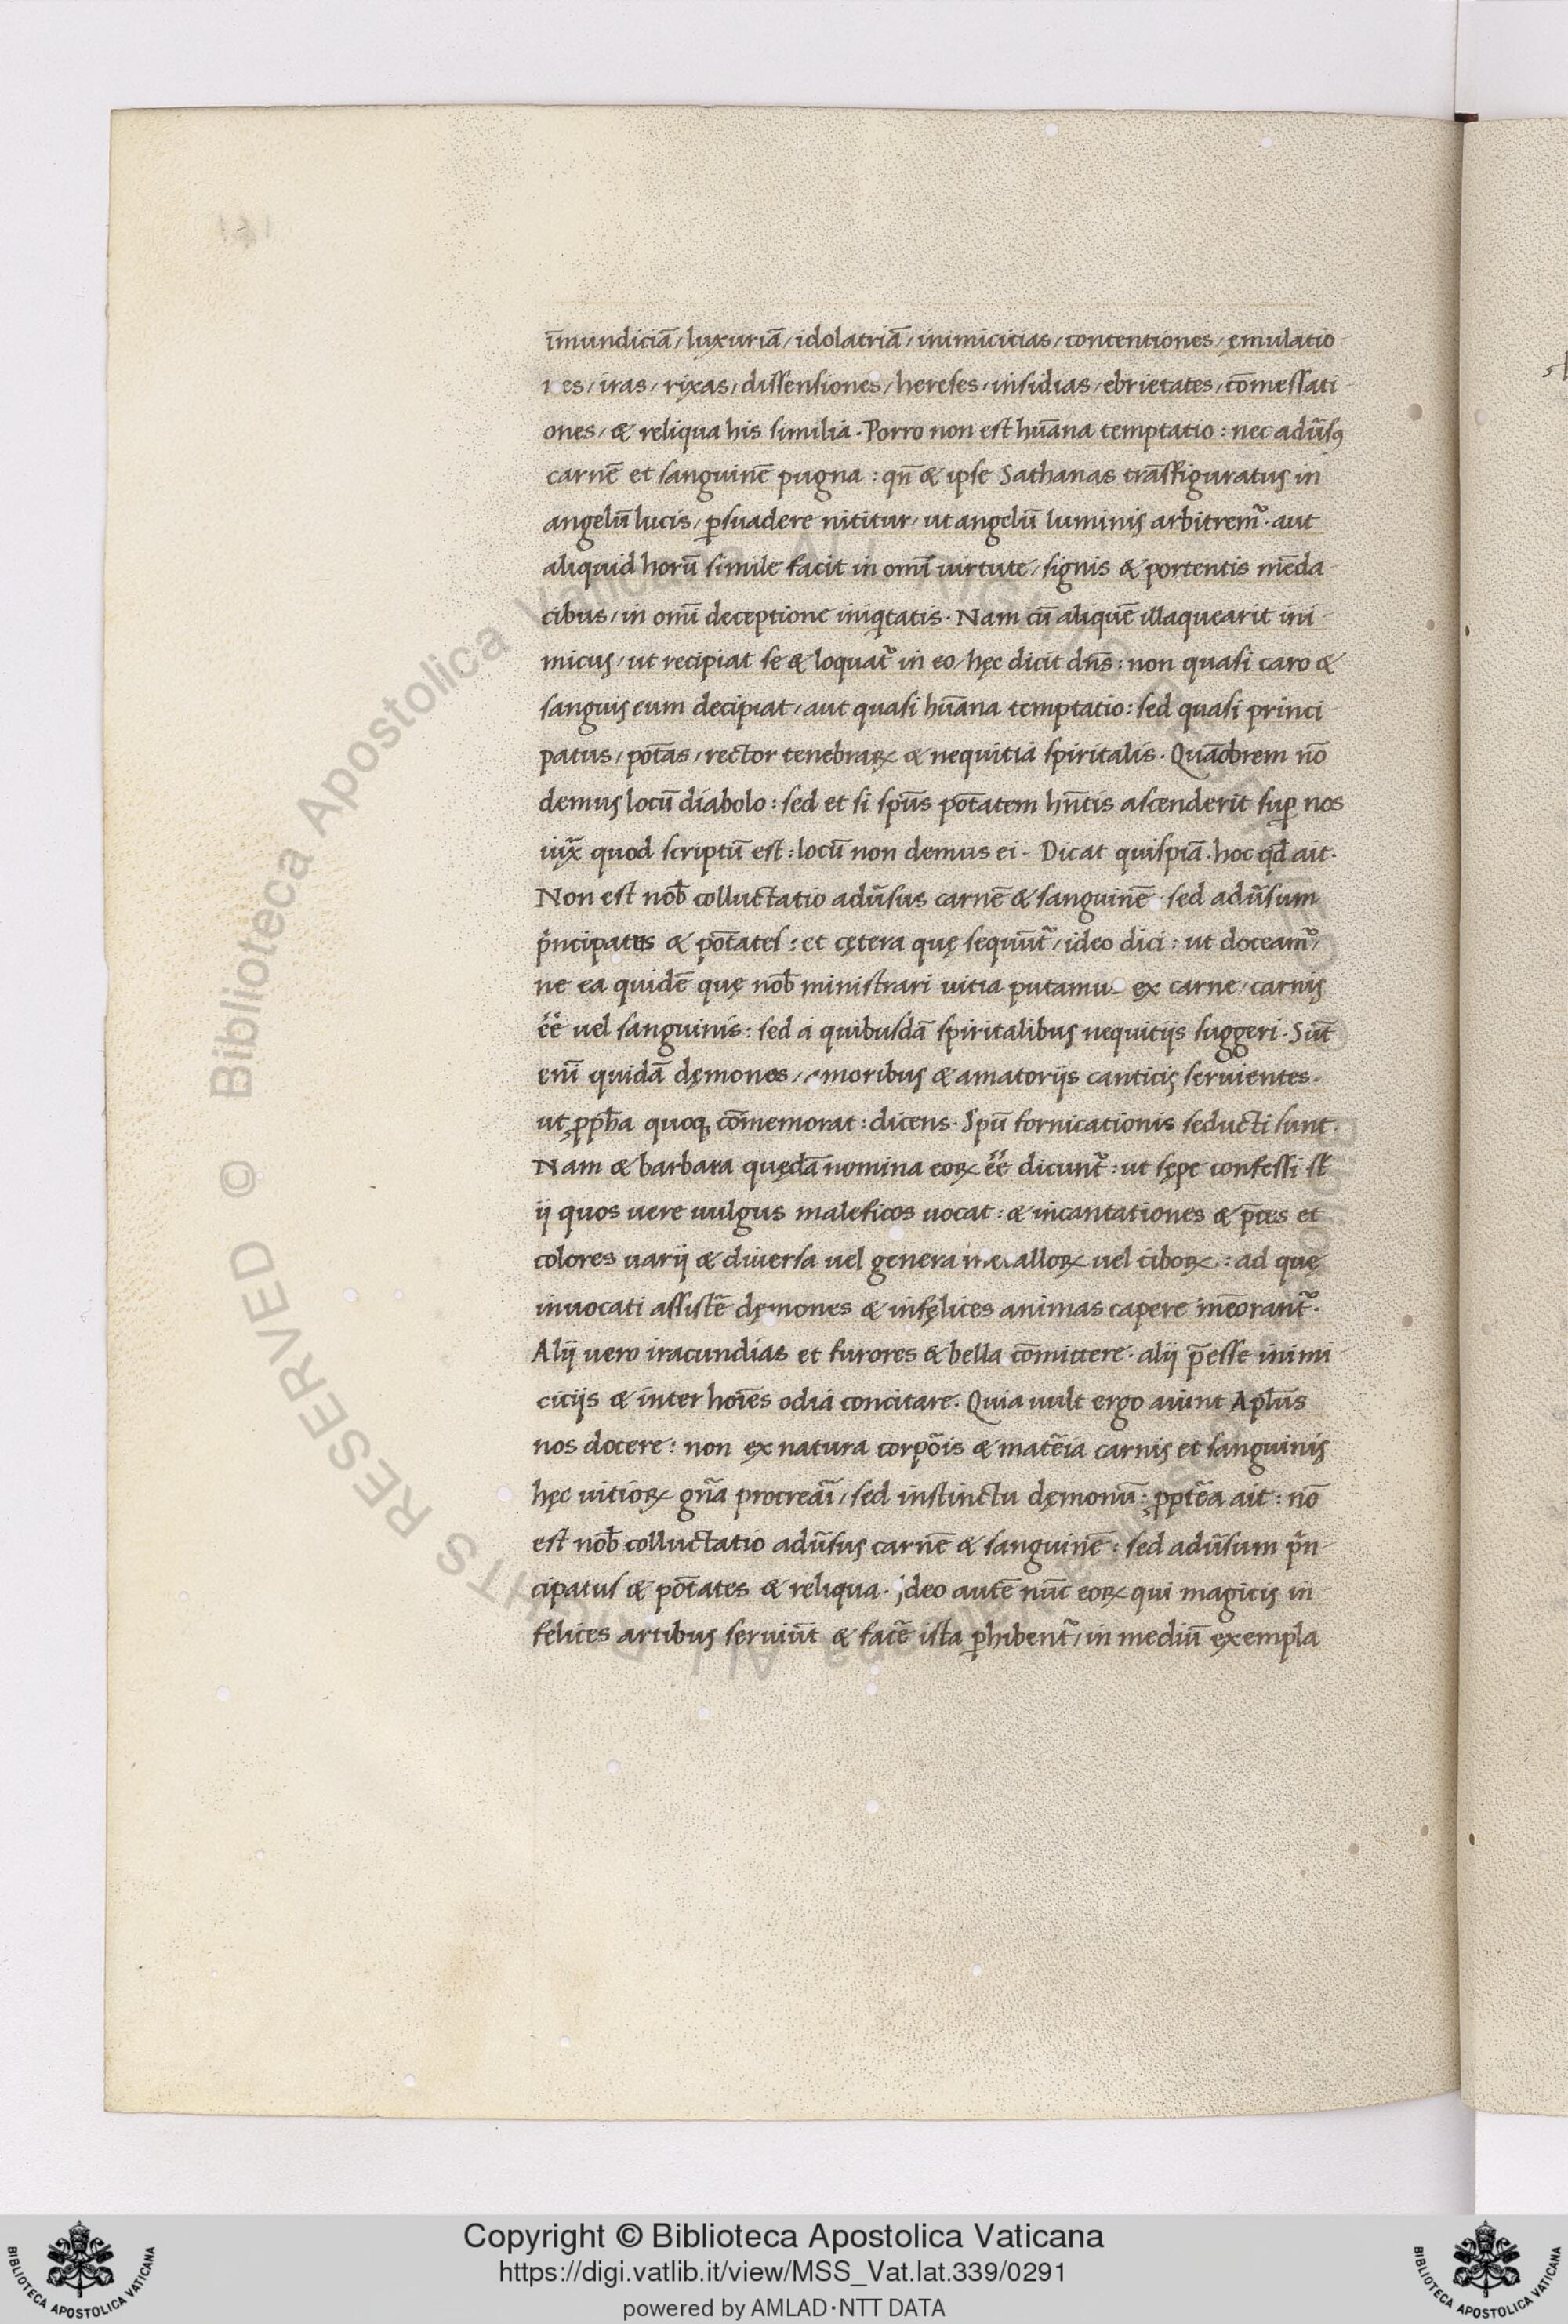 īmundiciā/ luxuriā/ idolatriā/ inimicicias/ contentiones/ ęmulatio
nes/ iras/ rixas/ dissensiones/ hereses/ insidias/ ebrietates/ cōmessati
ones/ & reliqua his similia. Porro non est hūana temptatio: nec adūsꝰ
carnē et sanguinē pugna: qn̄ & ipse Sathanas trāsfiguratus in
angelū lucis/ ꝑsuadere nititur/ ut angelū luminis arbitremꝰ. aut
aliquid horū simile facit in omī uirtute/ signis & portentis mēda
cibus/ in omī deceptione iniqtatis. Nam cū aliquē illaquearit ini
micus/ ut recipiat se & loquat᷑ in eo/ hęc dicit dn̄s: non quasi caro &
sanguis eum decipiat/ aut quasi hūana temptatio: sed quasi princi
patus/ potās/ rector tenebraꝝ & nequitia spiritalis. Quāobrem nō
demus locū diabolo: sed et si spūs potātem hn̄tis ascenderit suꝑ nos
iux̄ quod scriptū est: locū non demus ei. Dicat quispiā. hoc qd̄ ait.
Non est nob̄ colluctatio adūsus carnē & sanguinē sed adūsum
pͥncipatus & potātes: et cętera quę sequūt᷑/ ideo dici: ut doceamꝰ/
ne ea quidē quę nob̄ ministrari uitia putamus ex carne/ carnis
ēē uel sanguinis: sed a quibusdā spiritalibus nequitijs suggeri. Sūt
enī quidā dęmones/ amoribus & amatorijs canticis seruientes.
ut ꝓph̄a quoqꝫ cōmemorat: dicens. Spū fornicationis seducti sunt.
Nam & barbara quędā nomina eoꝝ ēē dicunt᷑: ut sępe confessi st̄
ij quos uere uulgus maleficos uocat: & incantationes & p̄ces et
colores uarij & diuersa uel genera metalloꝝ uel ciboꝝ: ad quę
inuocati assistē dęmones & infęlices animas capere mēorant᷑.
Alij uero iracundias et furores & bella cōmittere. alij p̄esse inimi
cicijs & inter hoīes odia concitare. Quia uult ergo aiunt Apl̄us
nos docere: non ex natura corpōis & matēia carnis et sanguinis
hęc uitioꝝ gn̄a procreāi/ sed instinctu dęmonū: ꝓptēa ait: nō
est nob̄ colluctatio adūsus carnē & sanguinē: sed adūsum pͥn
cipatus & potātes & reliqua. Ideo autē nūc eoꝝ qui magicis in
felices artibus seruiūt & facē ista ꝑhibent᷑/ in mediū exempla
© Biblioteca Apostolica Vaticana ALL RIGHTS RESERVED
Copyright © Biblioteca Apostolica Vaticana
https://digi.vatlib.it/view/MSS_Vat.lat.339/0291
powered by AMLAD·NTT DATA
BIBLIOTECA APOSTOLICA VATICANA
BIBLIOTECA APOSTOLICA VATICANA